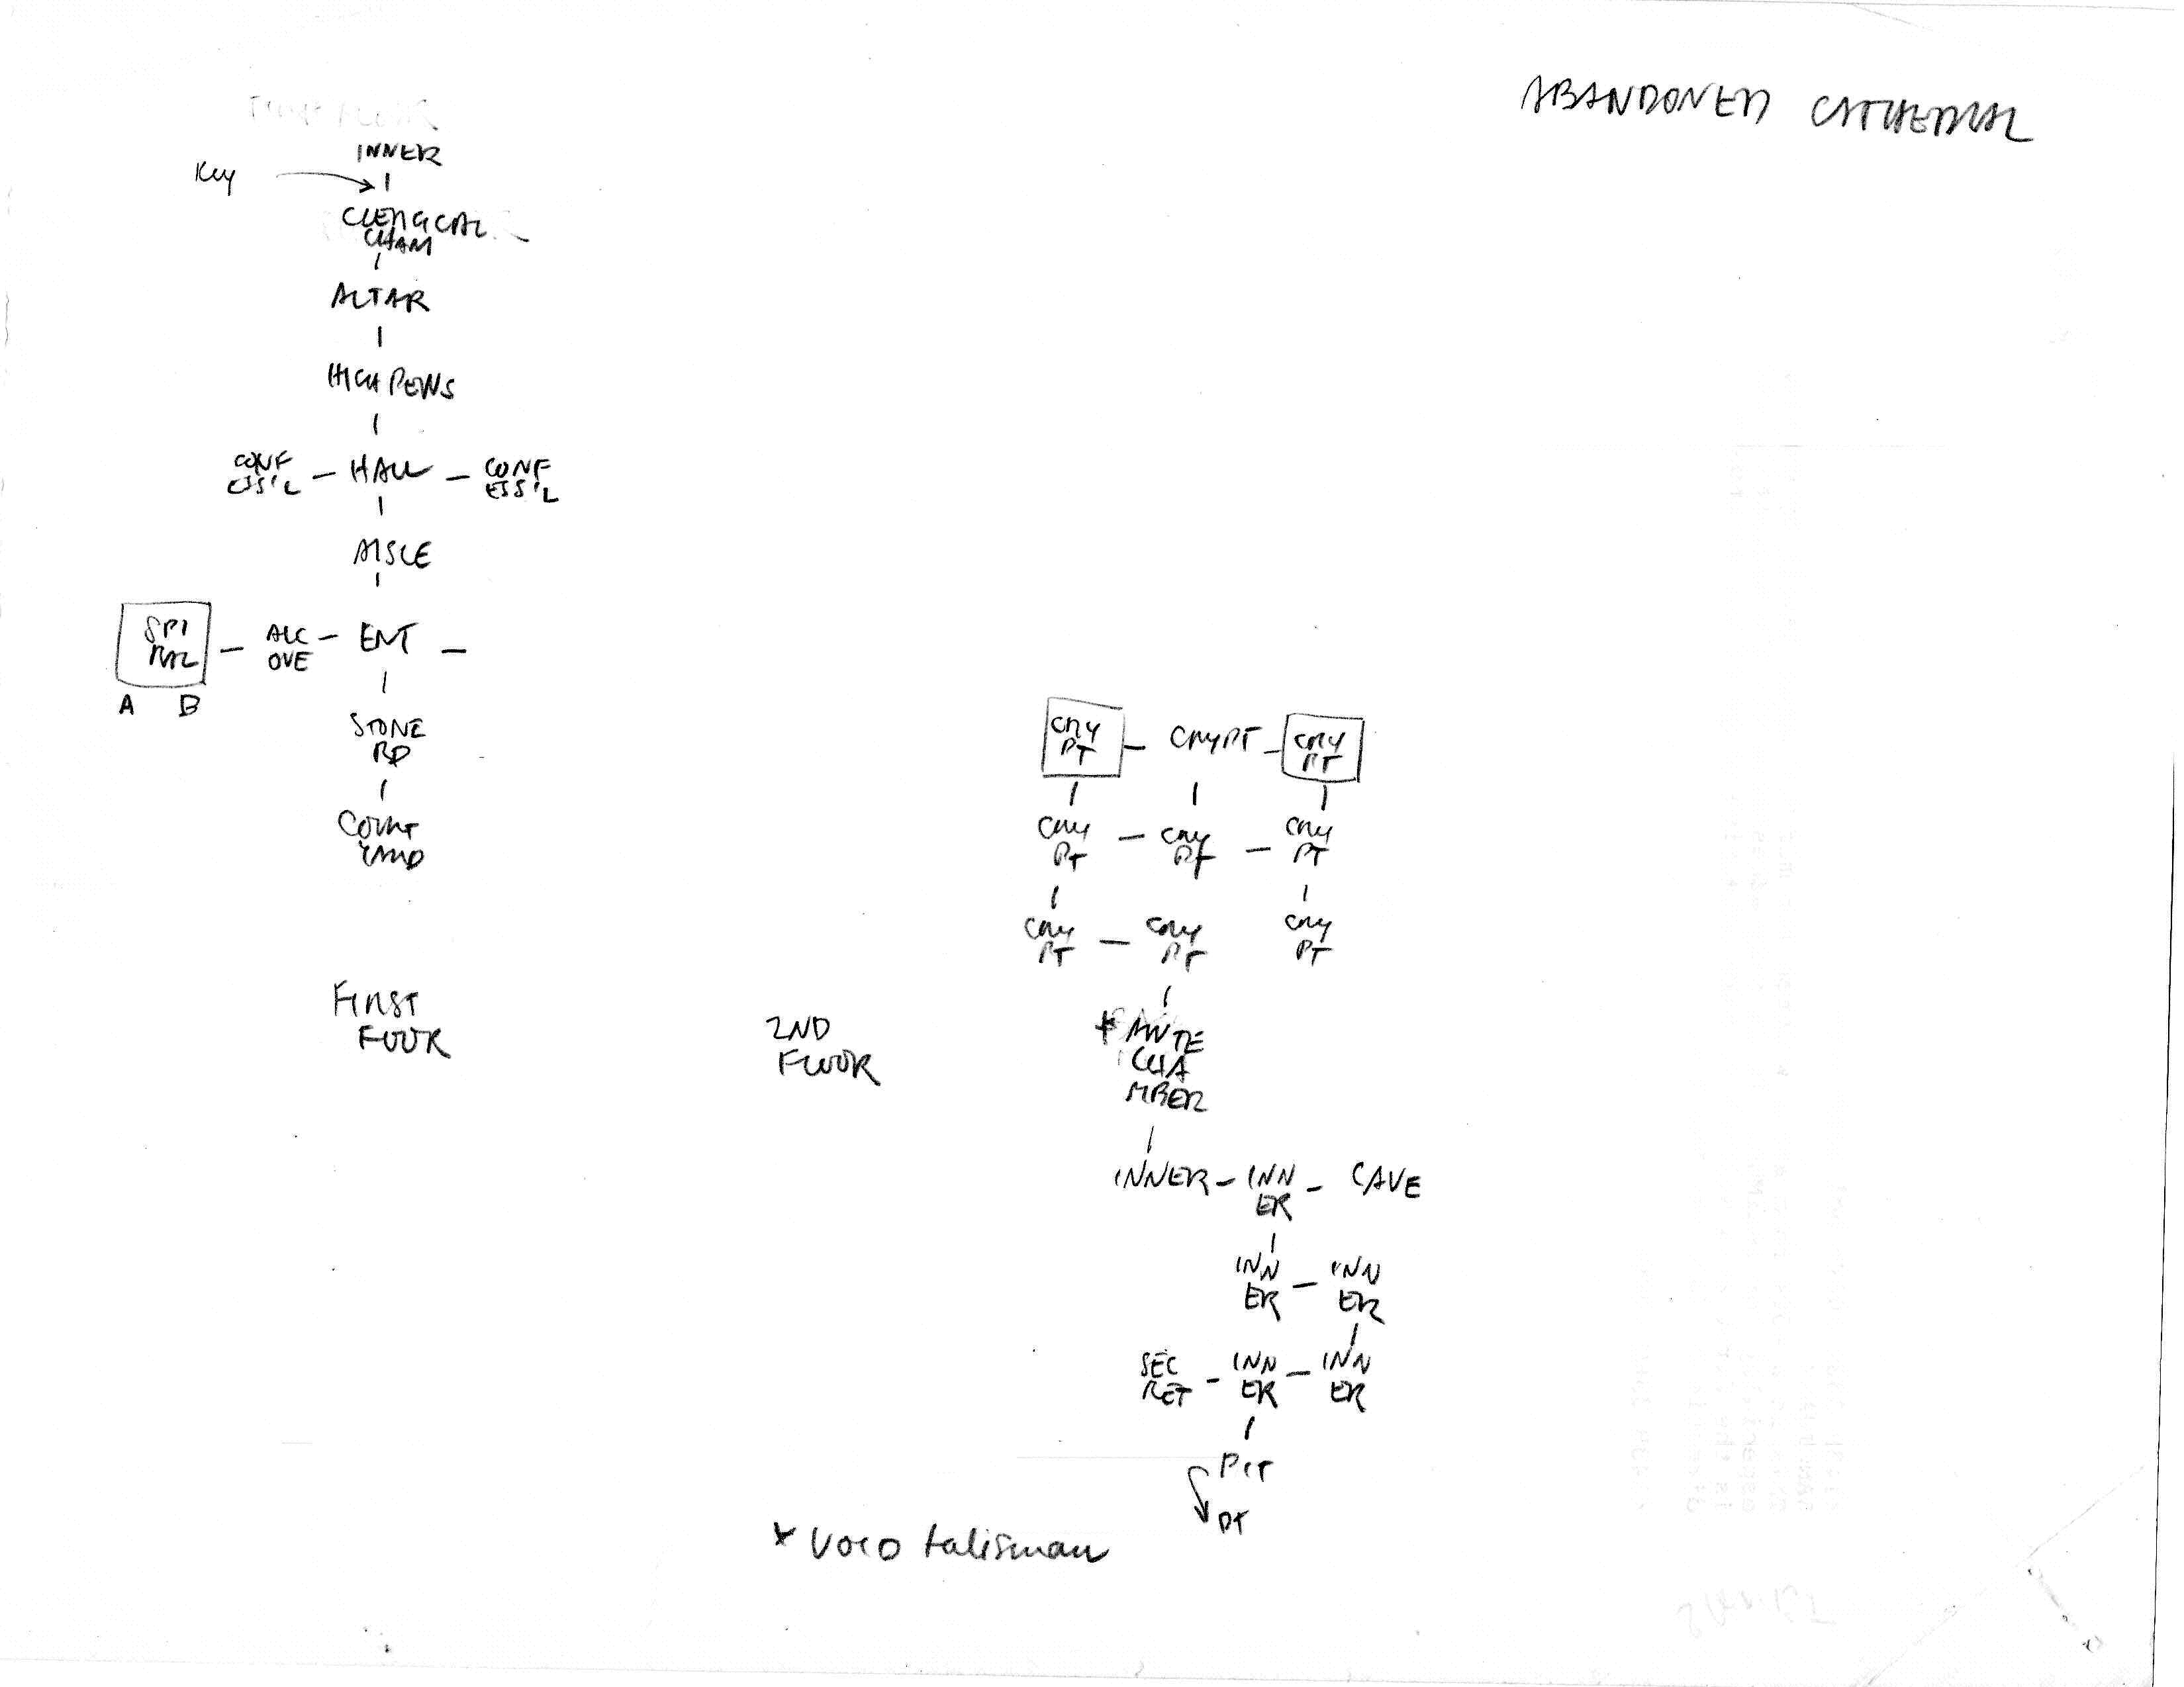 ABANDONED CATHEDRAL
INNER
Key
CLERGCAL
CHAM
ALTAR
HIGH PEWS
CONF
ESS'L
HALL
CONF
ESS'L
AISLE
SPI
RAL
ALC
OVE
ENT
A B
STONE
RD
COURT
YARD
FIRST
FLOOR
2ND
FLOOR
CRY
PT
CRYPT
CRY
PT
CRY
PT
CRY
PT
CRY
PT
CRY
PT
CRY
PT
CRY
PT
* ANTE
CHA
MBER
INNER
INN
ER
CAVE
INN
ER
INN
ER
SEC
RET
INN
ER
INN
ER
PIT
DT
* Void talisman